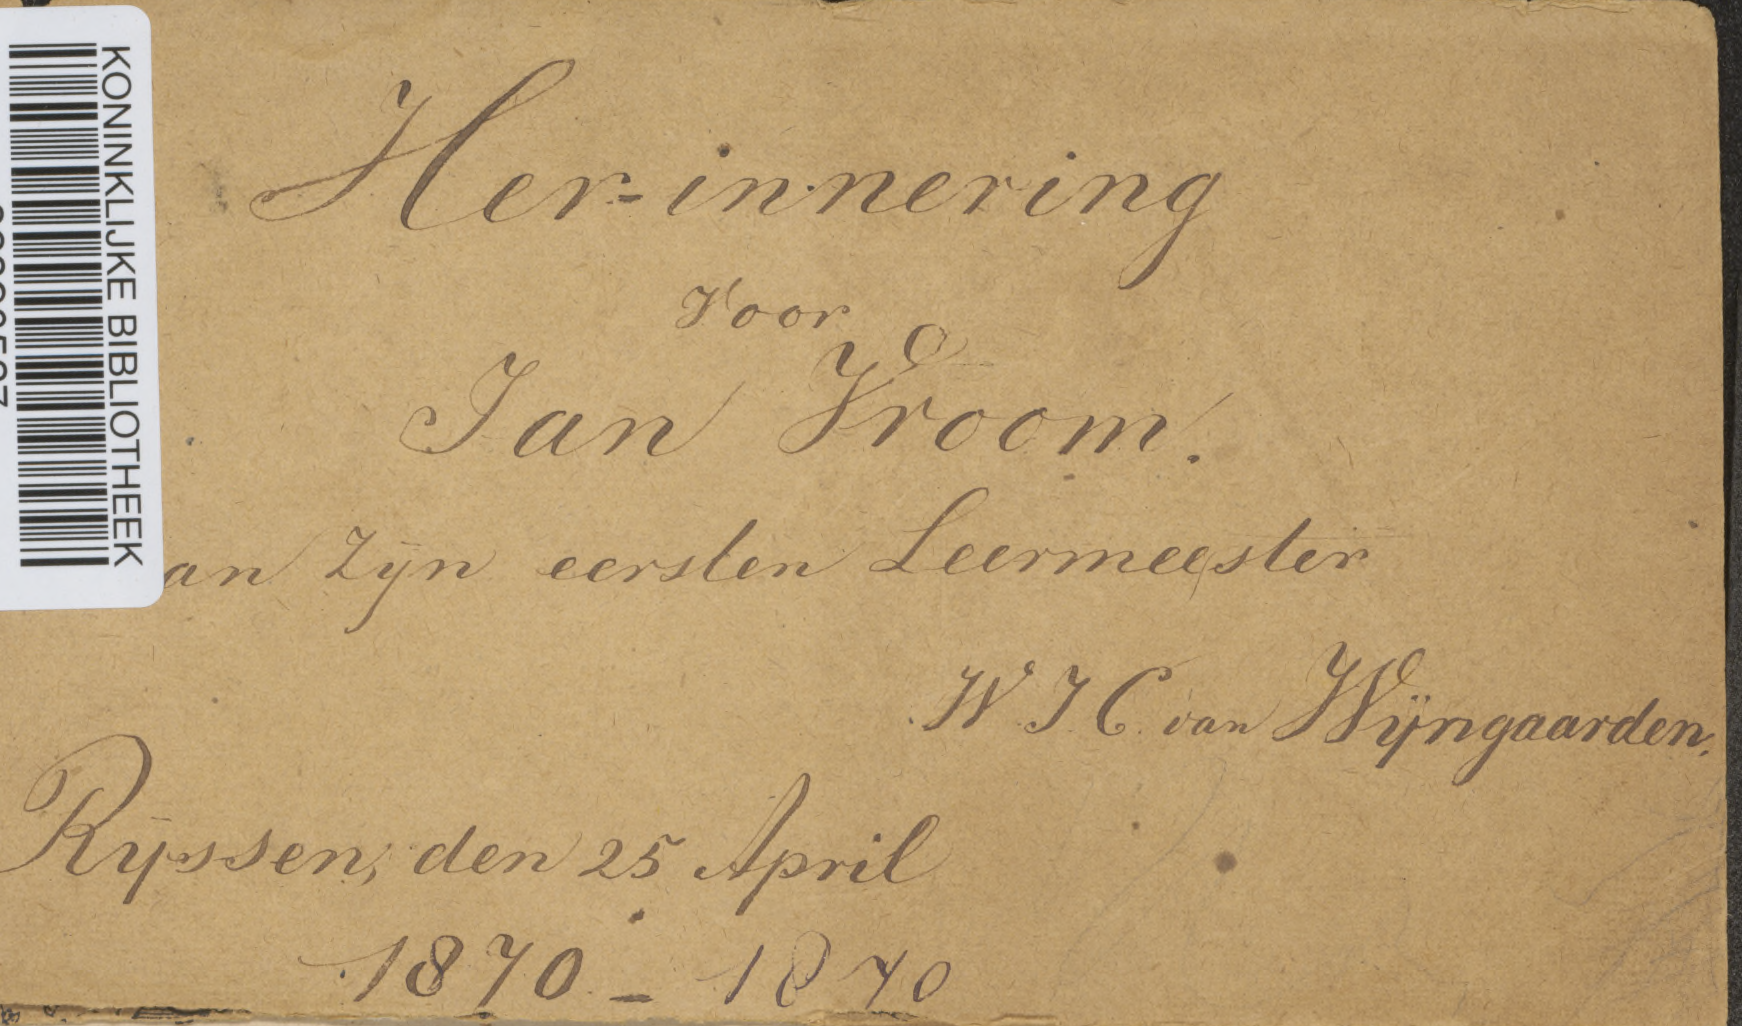 KONINKLIJKE BIBLIOTHEEK
Her-innering
Voor
Jan Vroom.
an Zijn eersten Leermeester
W. J. C. van Wijngaarden.
Ryssen, den 25 April
1870 - 1870